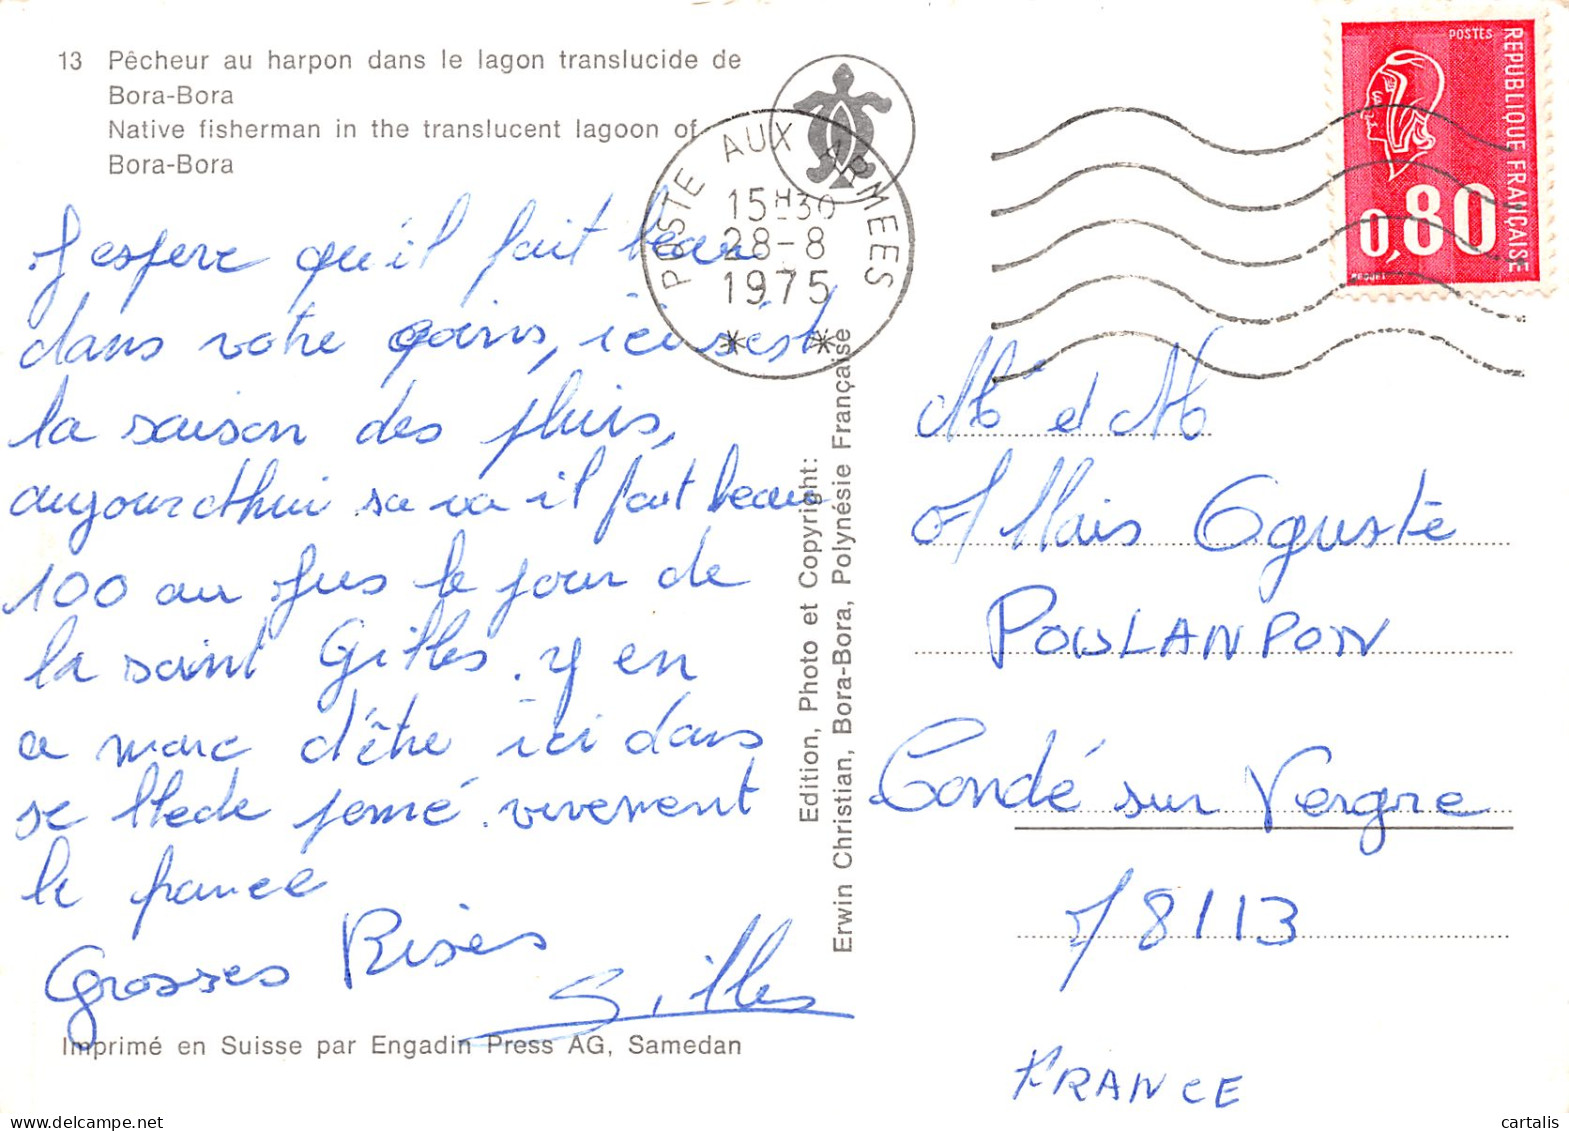 13 Pêcheur au harpon dans le lagon translucide de
Bora-Bora
Native fisherman in the translucent lagoon of
Bora-Bora
POSTE AUX ARMEES
15H30
28-8
1975
* *
POSTES
REPUBLIQUE FRANÇAISE
0,80
BEQUET
J espere qu'il fait beau
dans votre, ici s'est
la saison des pluis,
aujourdhui sa va il fait beau
100 au Jus le jour de
la saint Gilles. y en
a marc d'être ici dans
se blede pomé. vivement
le france
Grosses Bises
Gilles
Imprimé en Suisse par Engadin Press AG, Samedan
Edition, Photo et Copyright:
Erwin Christian, Bora-Bora, Polynésie Française
Mr et M
Oguste
Condé sur Vesgre
78113
FRANCE
cartalis